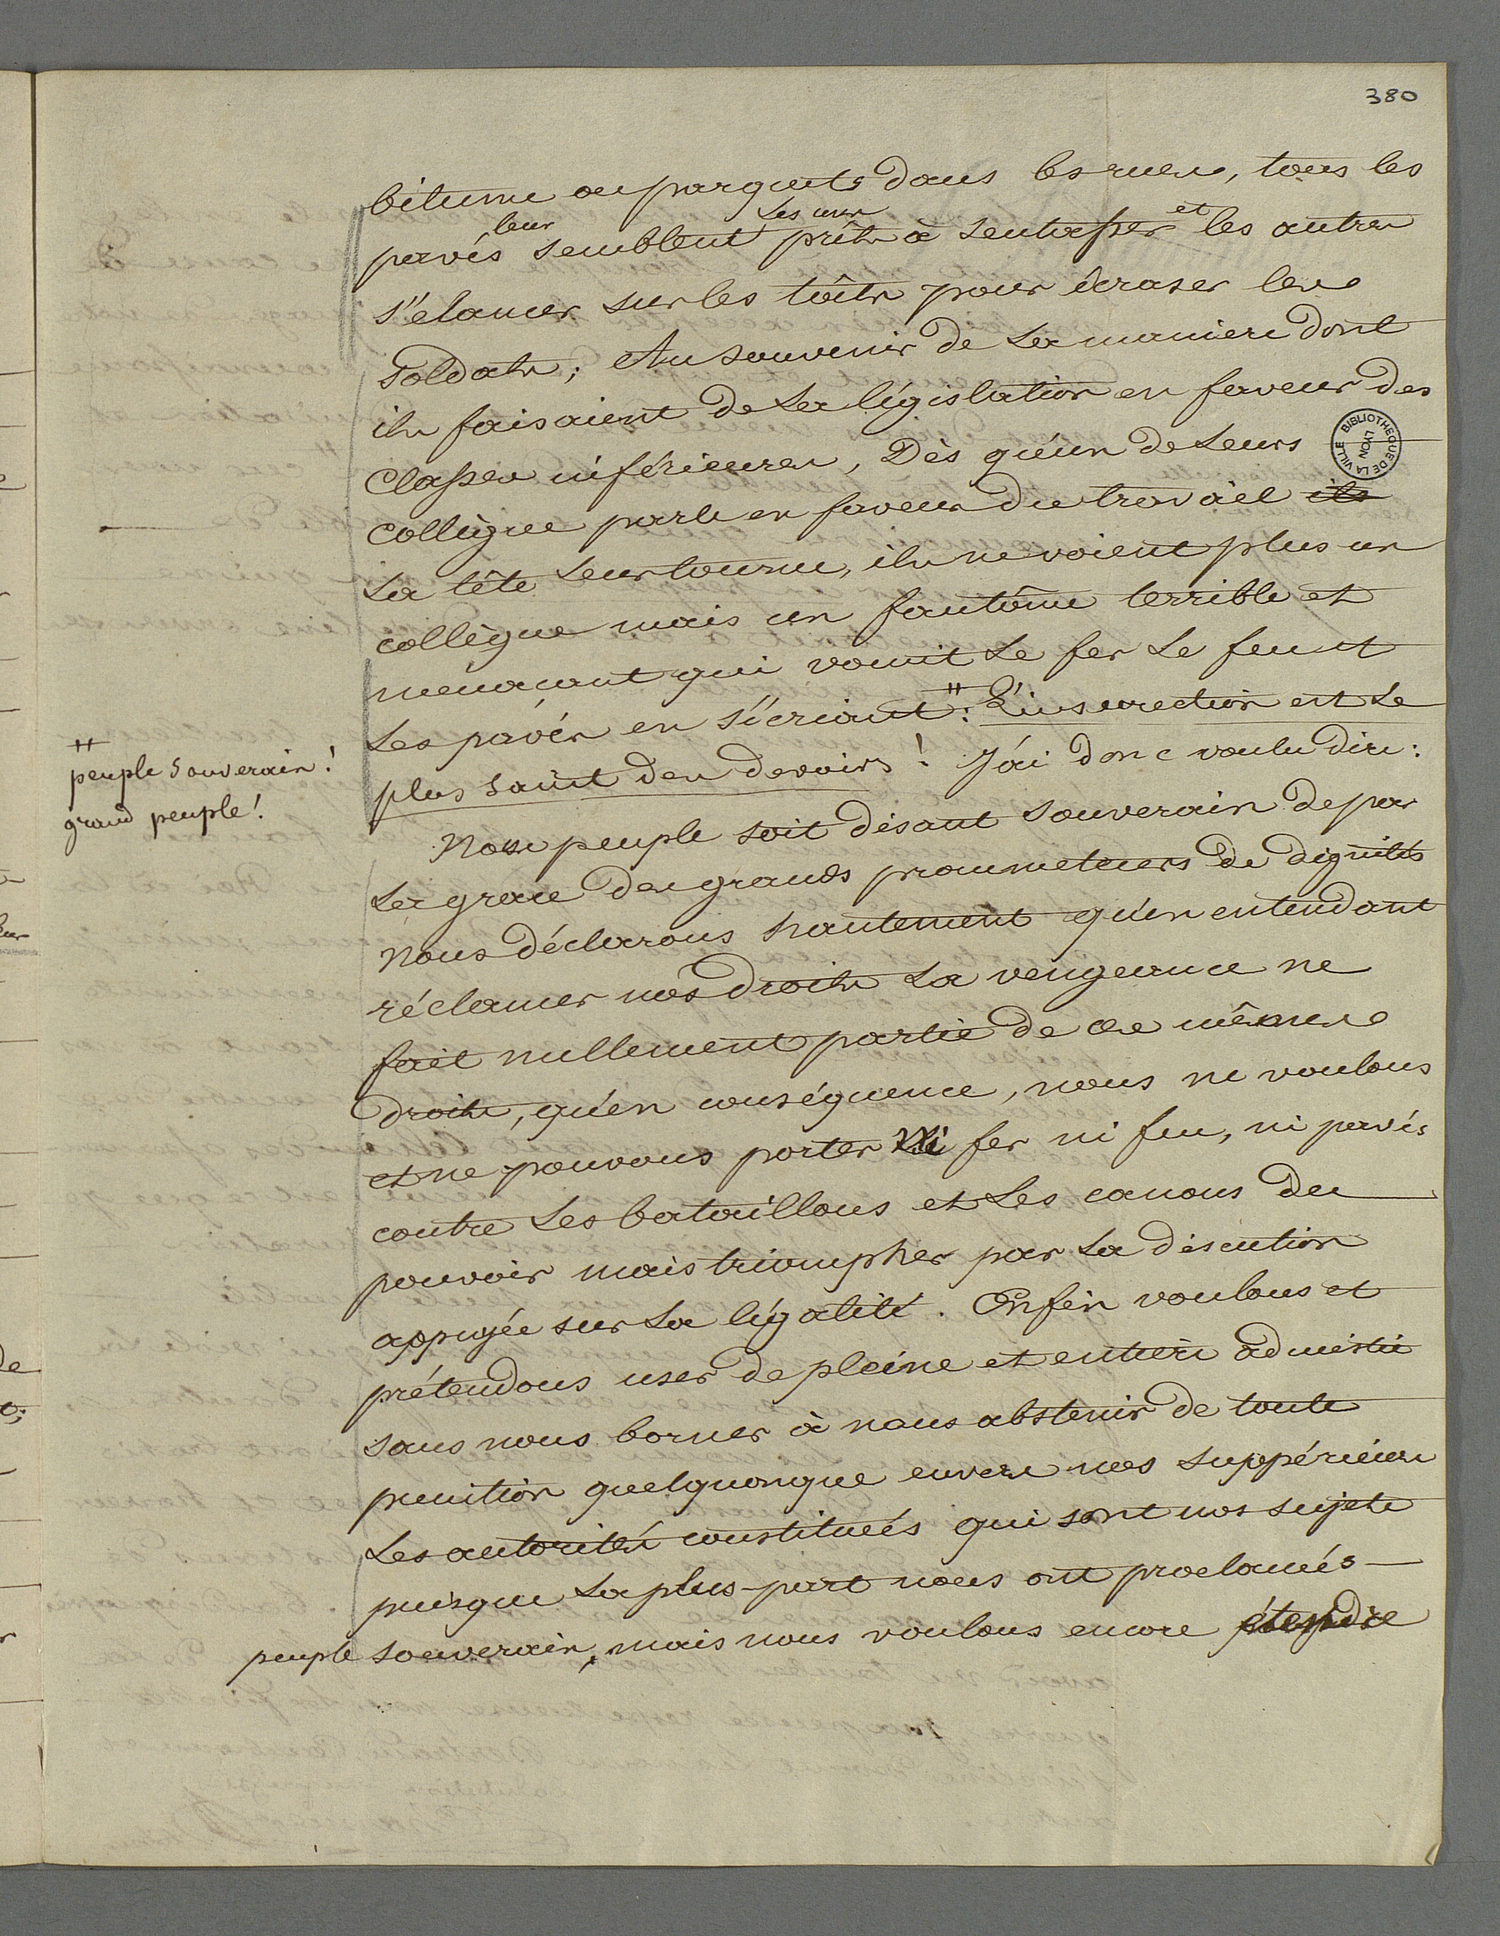 380
bitume ou parquets dans les rues, tous les
leur les uns et
pavés semblent prêts à s'entasser les autres
s'elancer sur les toîts pour écraser les
soldats; Au souvenir de la maniere dont
ils faisaient de la législation en faveur des
classes inférieures, Dès qu'un de leurs
collègue parle en faveur du travail ils
la tête leur tourne, ils ne voient plus un
collègue mais un fantôme terrible et
menacant qui vomit le fer le feu et
les pavés en s'écriant ⧺: L'insurection est le
plus saint des devoirs! J'ai donc voulu dire:
⧺
peuple souverain!
grand peuple!
Nous peuple soit disant souverain de par
la grace des grands prometteurs de dignités
nous déclarons hautement qu'en entendant
réclamer nos droits la vengeance ne
fait nullement partie de ces mêmes
droits, qu'en conséquence, nous ne voulons
et ne pouvons porter ni fer ni feu, ni pavés
contre les bataillons et les canons du
pouvoir mais triompher par la discution
appuyée sur la légalité. Enfin voulons et
prétendons user de pleine et entière admistie
sans nous borner à nous abstenir de toute
punition quelquonque envers nos suppérieurs
les autorités constituées qui sont nos sujets
puisque la plus-part nous ont proclamés
peuple souverain, mais nous voulons encore étendre
BIBLIOTHEQUE DE LA VILLE LYON